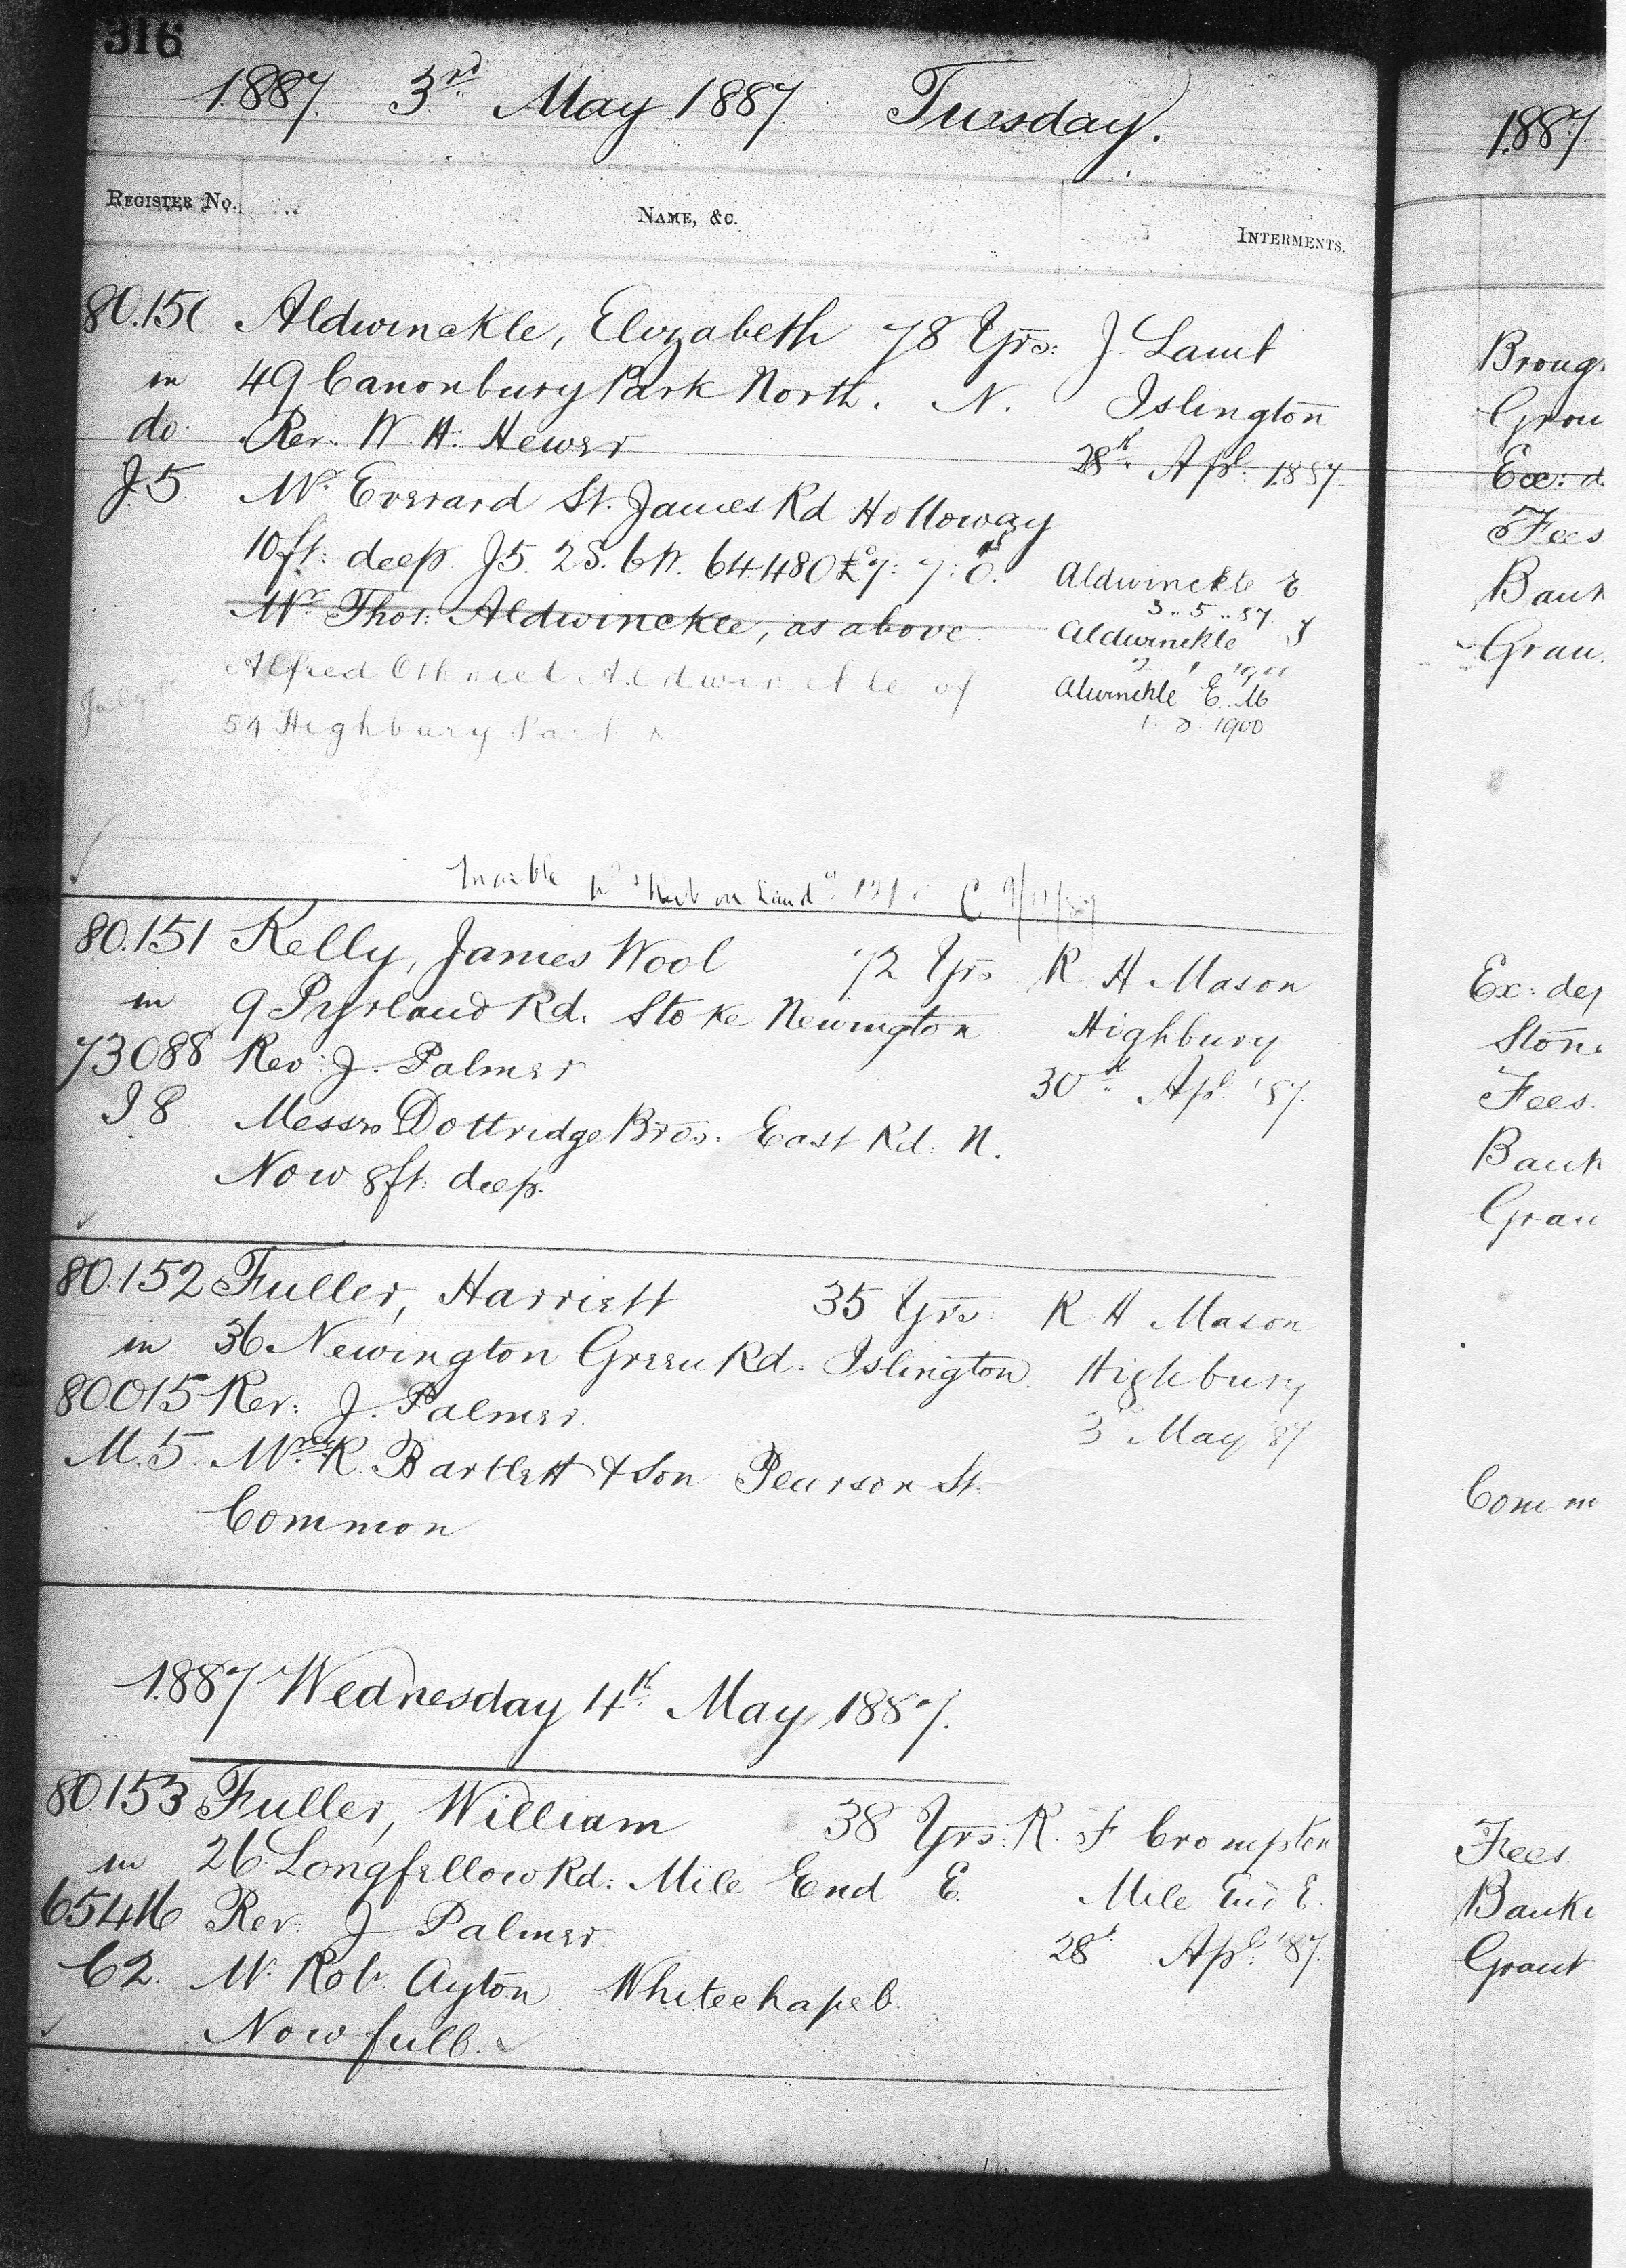 316
1887. 3rd May 1887. Tuesday.
REGISTER NO. NAME, &C. INTERMENTS.
80.150 Aldwinckle, Elizabeth 78 Yrs: J. Lamb
in 49 Canonbury Park North. N. Islington
do. Rev. W. H. Hewer 28th Apl. 1887
J.5. Mr. Everard St. James Rd Holloway
10 ft: deep J5. 2S. 6W. 64480 £7: 7: 0.
Aldwinckle E
3..5..87.
Mr. Thos: Aldwinckle, as above.
Aldwinckle
Alfred Othniel Aldwinckle of
Alwinckle E. M
1900
54 Highbury Park N
July
80.151 Kelly, James Wool 72 Yrs. R H Mason
in 9 Pyrland Rd. Stoke Newington Highbury
73088 Rev: J. Palmer 30th Apl. '87.
I 8 Messrs Dottridge Bros. East Rd: N.
Now 8 ft: deep.
80.152 Fuller, Harriett 35 Yrs. R H Mason
in 36 Newington Green Rd. Islington. Highbury
80015 Rev: J. Palmer. 3 May '87
M.5. R. Bartlett & Son Pearson St.
Common
1887 Wednesday 4th May, 1887.
80.153 Fuller, William 38 Yrs: R. F Crompton
in 26 Longfellow Rd: Mile End E. Mile End E.
65416 Rev: J Palmer 28th Apl. '87.
C2. Mr. Robt. Ayton Whitechapel.
Now full.
1887
Broug
Gran
Exc: d
Fees
Bank
Gran
Ex: dep
Stone
Fees.
Bank
Gran
Comm
Fees.
Banke
Grant